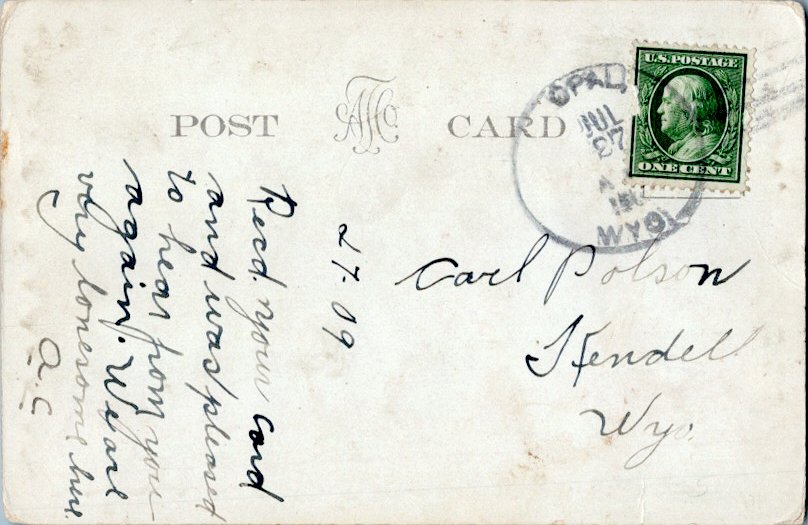 POST CARD
OPAL,
JUL
27
WYO.
U.S. POSTAGE
ONE CENT
27-09
Recd. your card
and was pleased
to hear from you
again. We are
very lonesome here.
a.c
Carl Polson
Kendell
Wyo.